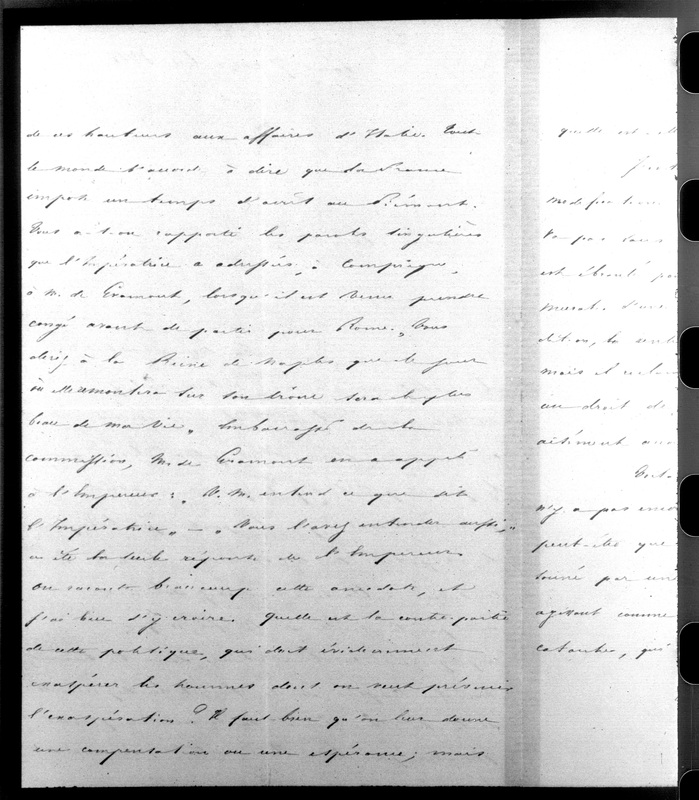 de ses hauteurs aux affaires d'Italie. Tout
le monde s'accorde à dire que la France
impose un temps d'arrêt au Piémont.
Vous a-t-on rapporté les paroles singulières
que l'Impératrice a adressées, à Compiègne,
à M. de Gramont, lorsqu'il est venu prendre
congé avant de partir pour Rome. „Vous
direz à la Reine de Naples que le jour
où elle remontera sur son trône sera le plus
beau de ma vie." Embarrassé de la
commission, M. de Gramont en a appelé
à l'Empereur: „V. M. entend ce que dit
l'Impératrice" — „Vous l'avez entendu aussi,"
a été la seule réponse de l'Empereur.
On raconte beaucoup cette anecdote, et
j'ai lieu d'y croire. Quelle est la contre-partie
de cette politique, qui doit évidemment
exaspérer les hommes dont on veut prévenir
l'exaspération? Il faut bien qu'on leur donne
une compensation ou une espérance; mais
quelle est
est ébranlé
Murat. d'une
mais il
un droit de
n'y a pas
peut-être que
par un
agissant comme
qui